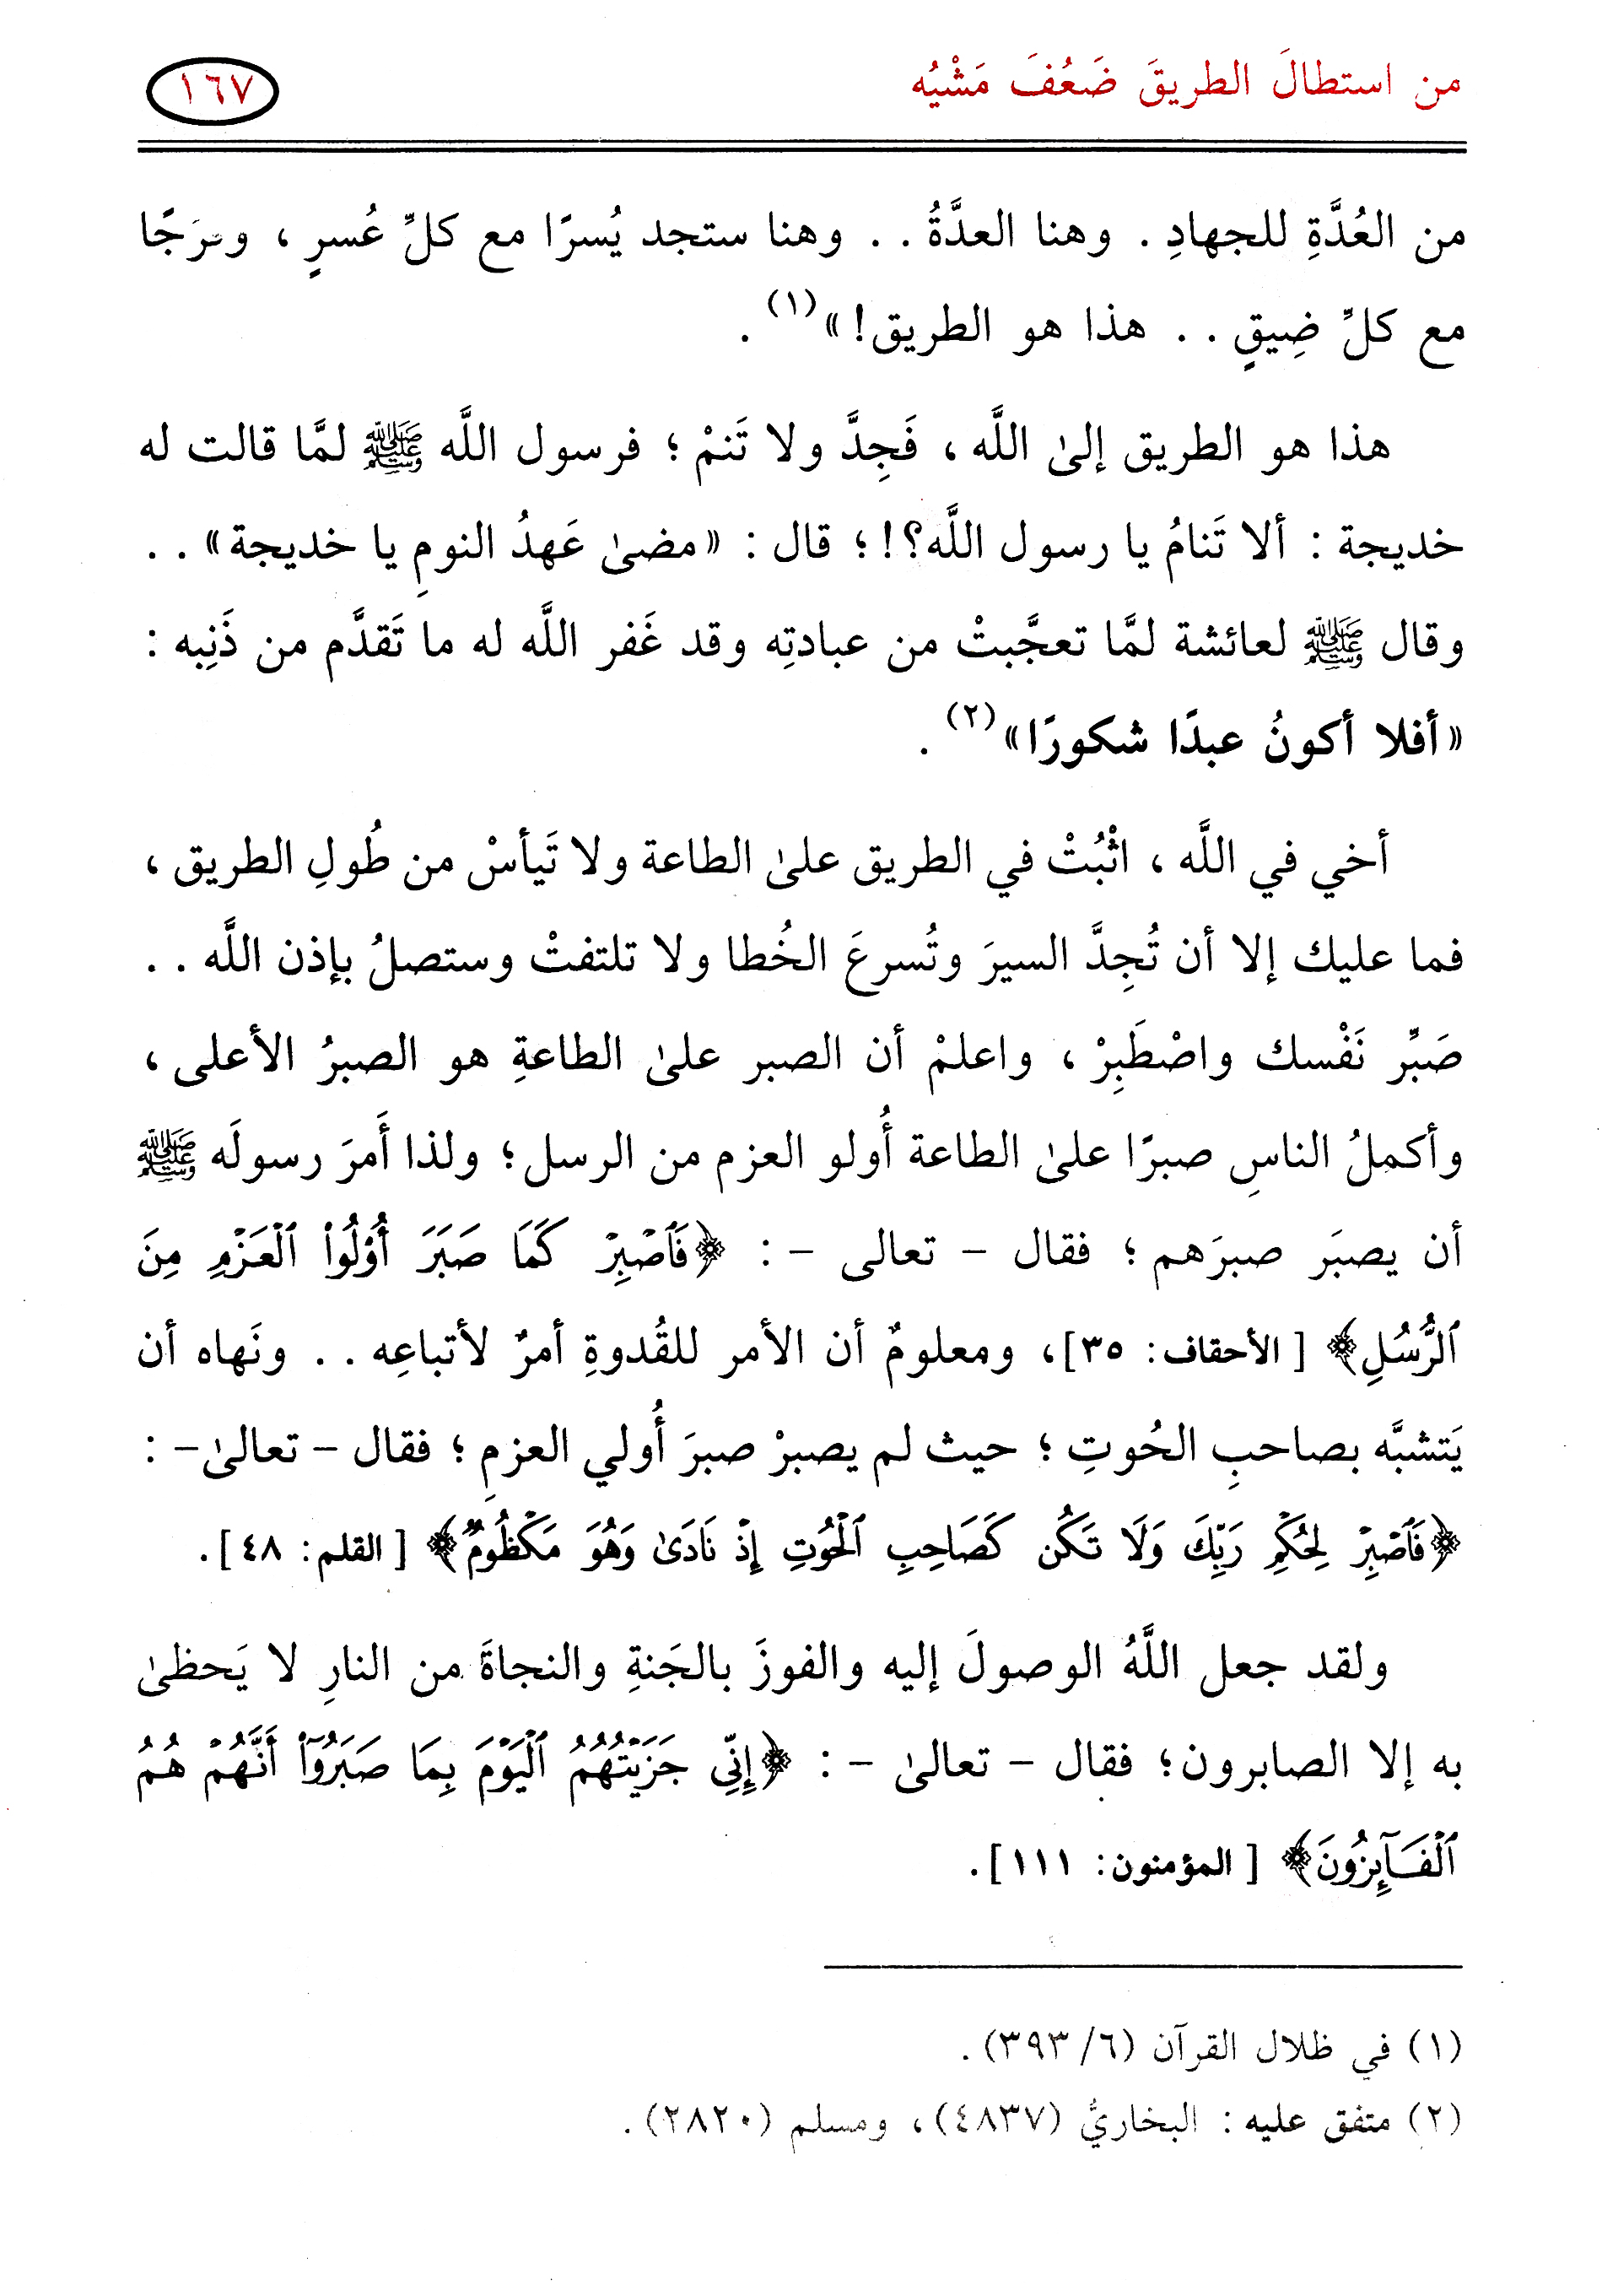 من استطالَ الطريقَ ضَعُفَ مَشْيُه
١٦٧
من العُدَّةِ للجهادِ . وهنا العدَّةُ . . وهنا ستجد يُسرًا مع كلِّ عُسرٍ ، وفرَجًا
مع كلِّ ضِيقٍ . . هذا هو الطريق!»(١) .
هذا هو الطريق إلىٰ اللَّه ، فَجِدَّ ولا تَنمْ ؛ فرسول اللَّه ﷺ لمَّا قالت له
خديجة : ألا تَنامُ يا رسول اللَّه؟!؛ قال : «مضىٰ عَهدُ النومِ يا خديجة» . .
وقال ﷺ لعائشة لمَّا تعجَّبتْ من عبادتِه وقد غَفر اللَّه له ما تَقدَّم من ذَنبِه :
«أفلا أكونُ عبدًا شكورًا»(٢) .
أخي في اللَّه ، اثْبُتْ في الطريق علىٰ الطاعة ولا تَيأسْ من طُولِ الطريق ،
فما عليك إلا أن تُجِدَّ السيرَ وتُسرعَ الخُطا ولا تلتفتْ وستصلُ بإذن اللَّه . .
صَبِّر نَفْسك واصْطَبِرْ ، واعلمْ أن الصبر علىٰ الطاعةِ هو الصبرُ الأعلى ،
وأكملُ الناسِ صبرًا علىٰ الطاعة أُولو العزم من الرسل؛ ولذا أَمرَ رسولَه ﷺ
أن يصبَر صبرَهم ؛ فقال – تعالى – : ﴿فَٱصۡبِرۡ كَمَا صَبَرَ أُوْلُواْ ٱلۡعَزۡمِ مِنَ
ٱلرُّسُلِ﴾ [الأحقاف: ٣٥]، ومعلومٌ أن الأمر للقُدوةِ أمرٌ لأتباعِه . . ونَهاه أن
يَتشبَّه بصاحبِ الحُوتِ ؛ حيث لم يصبرْ صبرَ أُولي العزمِ ؛ فقال – تعالىٰ– :
﴿فَٱصۡبِرۡ لِحُكۡمِ رَبِّكَ وَلَا تَكُن كَصَاحِبِ ٱلۡحُوتِ إِذۡ نَادَىٰ وَهُوَ مَكۡظُومٌ﴾ [القلم: ٤٨].
ولقد جعل اللَّهُ الوصولَ إليه والفوزَ بالجَنةِ والنجاةَ من النارِ لا يَحظىٰ
به إلا الصابرون؛ فقال – تعالىٰ – : ﴿إِنِّي جَزَيۡتُهُمُ ٱلۡيَوۡمَ بِمَا صَبَرُوٓاْ أَنَّهُمۡ هُمُ
ٱلۡفَآئِزُونَ﴾ [المؤمنون: ١١١].
(١) في ظلال القرآن (٦/ ٣٩٣).
(٢) متفق عليه : البخاريُّ (٤٨٣٧)، ومسلم (٢٨٢٠).